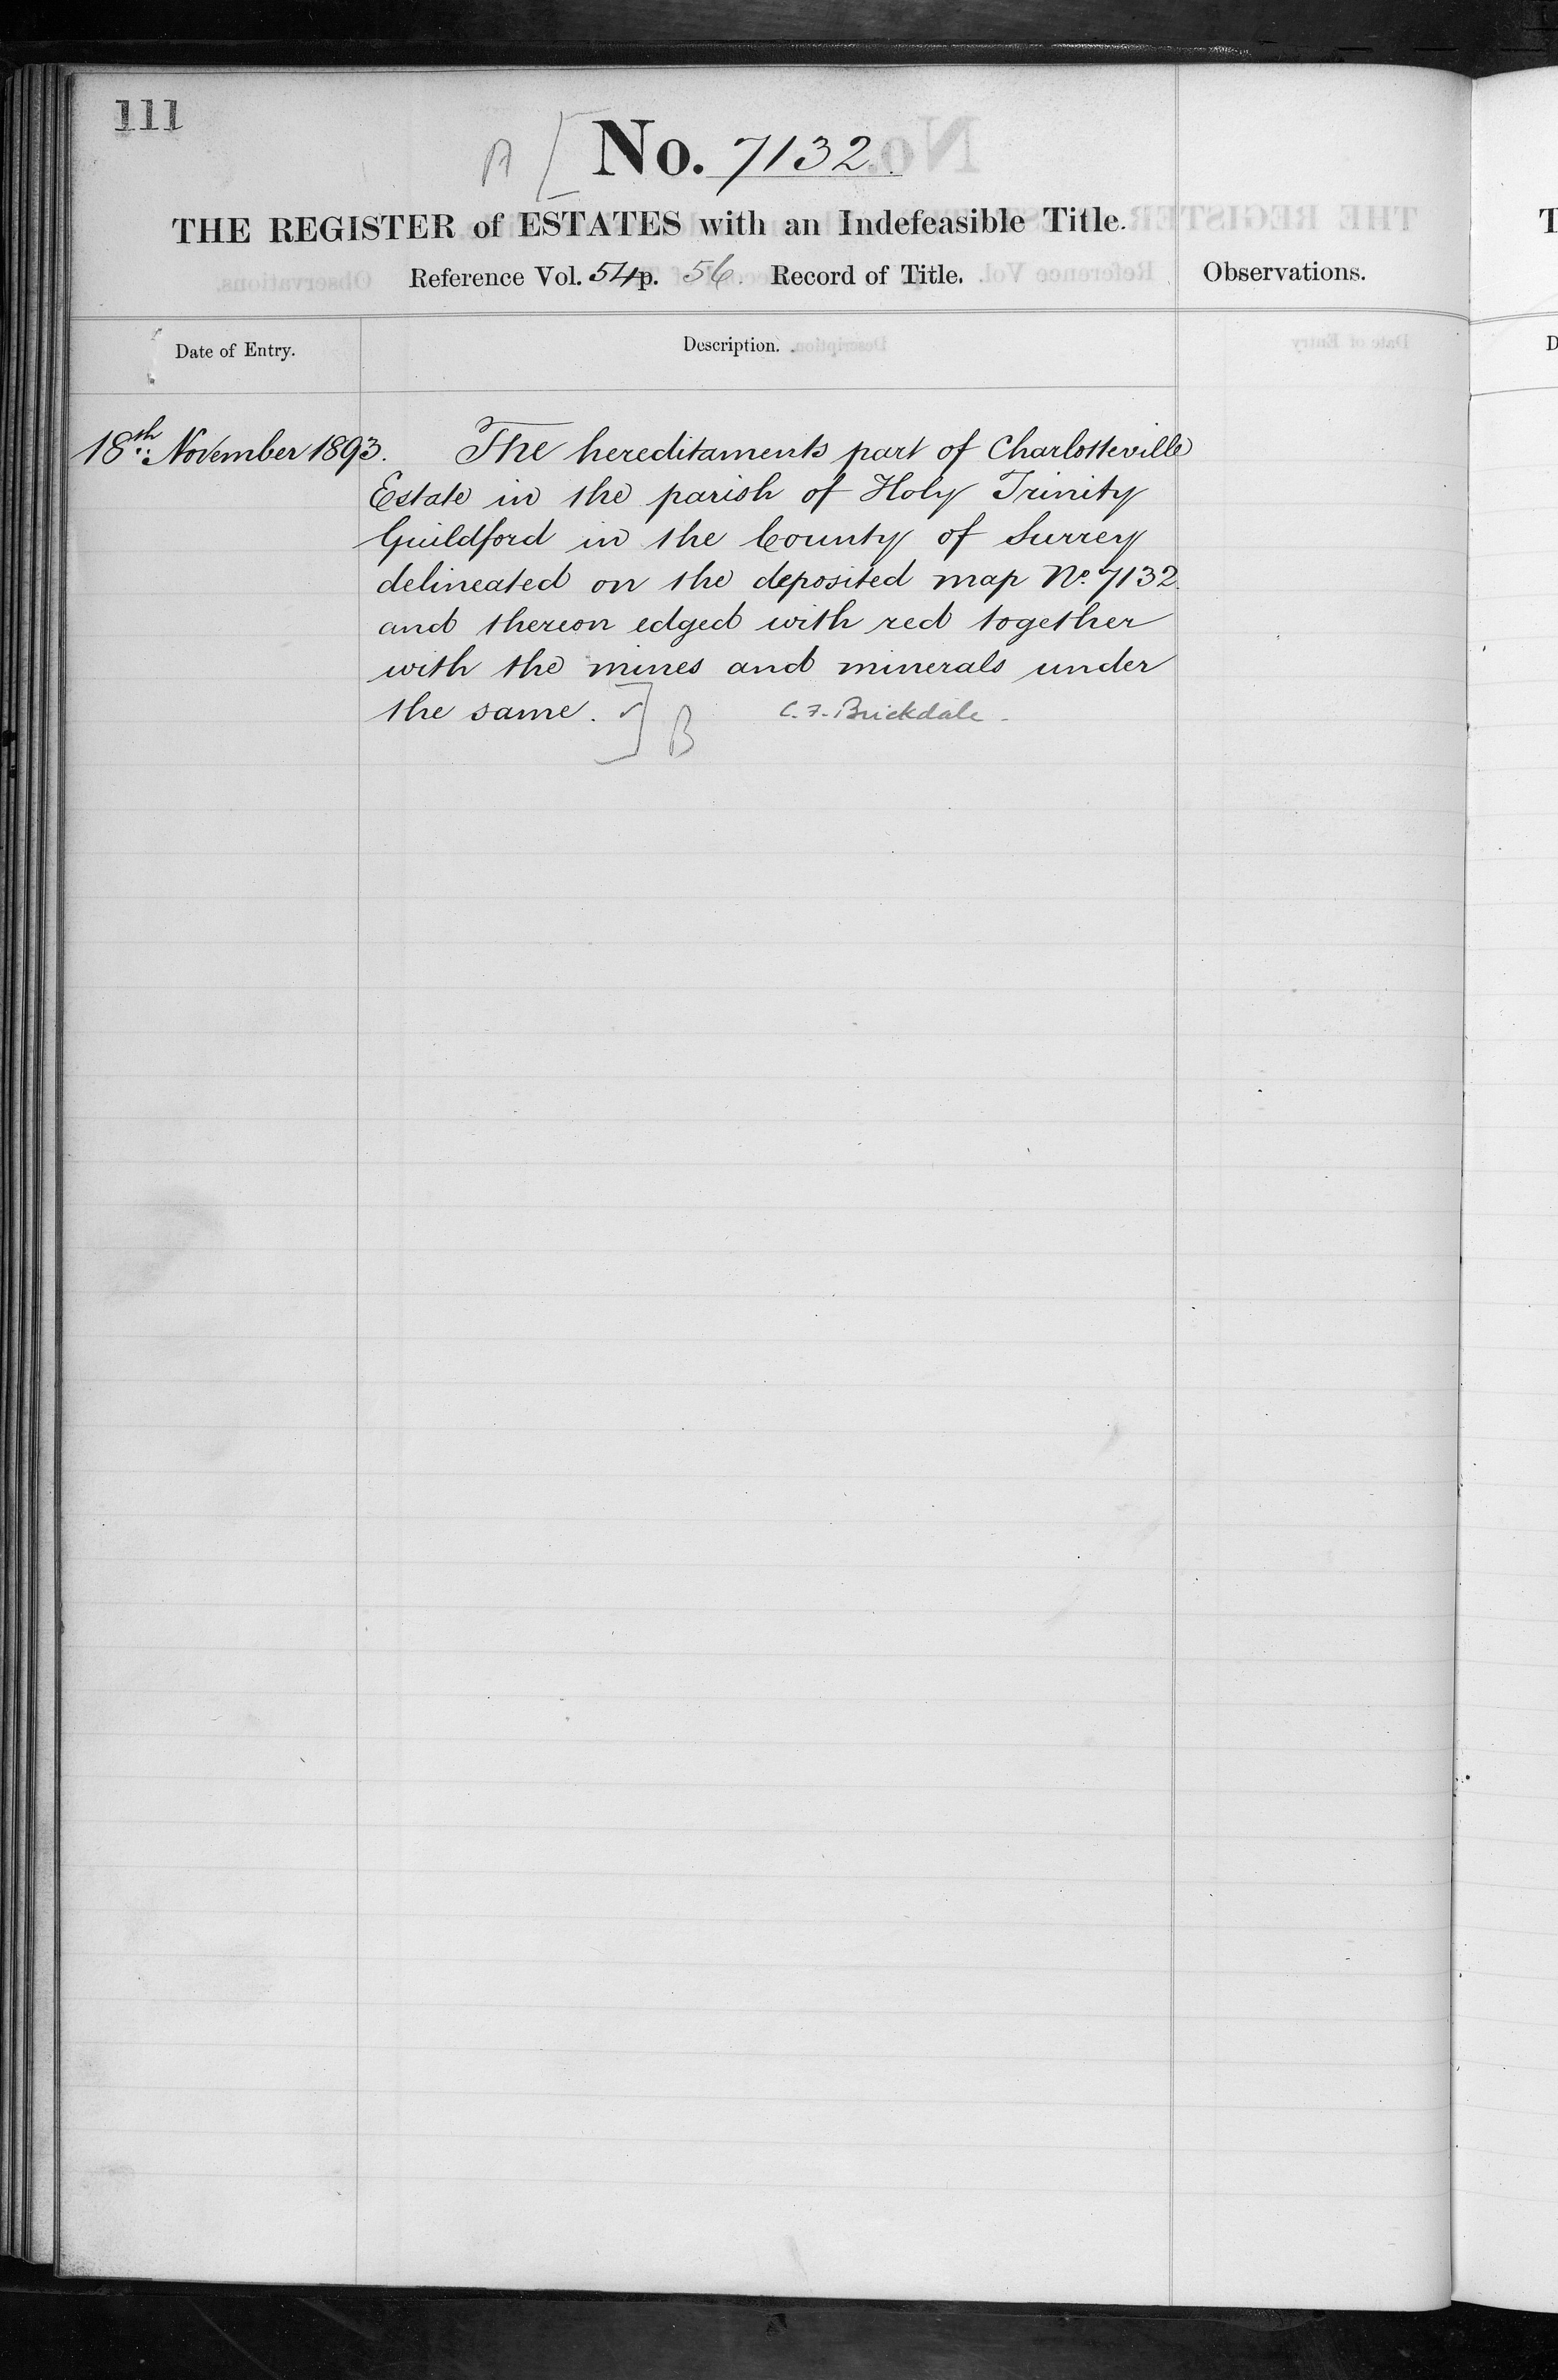 111
A [ No. 7132.
THE REGISTER of ESTATES with an Indefeasible Title.
Reference Vol. 54 p. 56. Record of Title.
Observations.
Date of Entry.
Description.
18th November 1893.
The hereditaments part of Charlotteville
Estate in the parish of Holy Trinity
Guildford in the County of Surrey
delineated on the deposited map No. 7132
and thereon edged with red together
with the mines and minerals under
the same. ] B C. F. Brickdale.
T
D